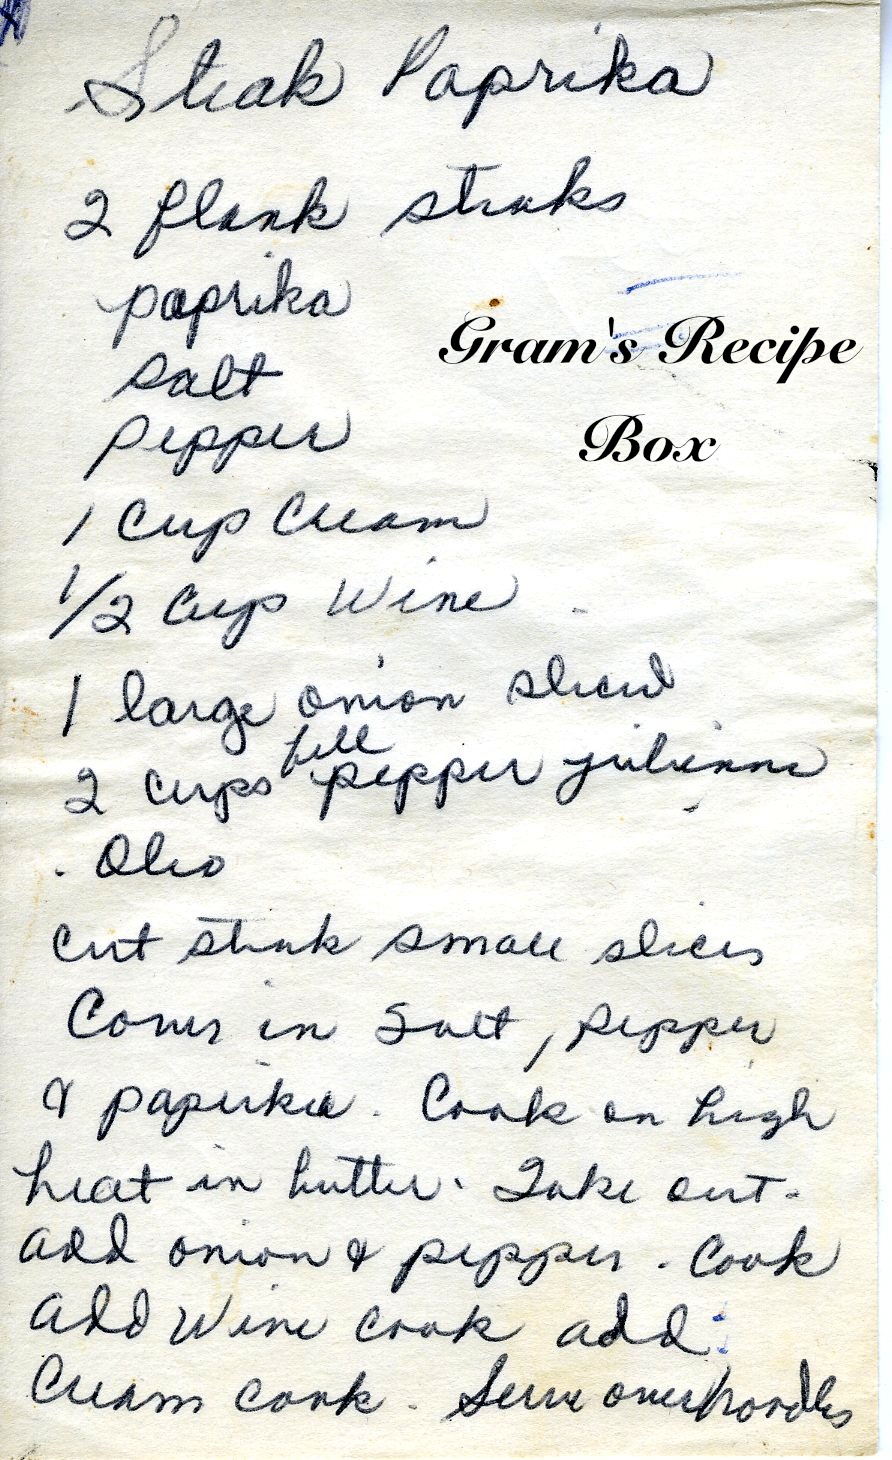 Steak Paprika
2 flank steaks
paprika
salt
pepper
1 Cup Cream
1/2 Cup Wine
1 large onion sliced
2 cups bell pepper julienne
. Oleo
Cut steak small slices
Cover in Salt, pepper
& paprika. Cook on high
heat in butter. Take out.
add onion & pepper. Cook
add Wine cook add
Cream cook. Serve over noodles
Gram's Recipe
Box